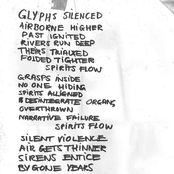 GLYPHS SILENCED
AIRBORNE HIGHER
PAST IGNITED
RIVERS RUN DEEP
THEIRS TRIAXED
FOLDED TIGHTER
SPIRITS FLOW
GRASPS INSIDE
NO ONE HIDING
SPIRITS ALLIGNED
DESINTEGRATE ORGANS
OVERTHROWN
NARRATIVE FAILURE
SPIRITS FLOW
SILENT VIOLENCE
AIR GETS THINNER
SIRENS ENTICE
BY GONE YEARS